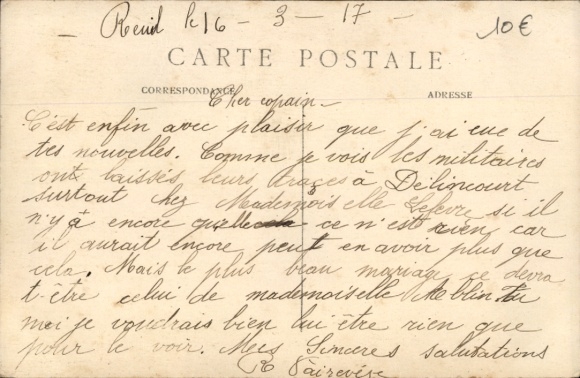 Reuil le 16 - 3 - 17 -
10€
CARTE POSTALE
CORRESPONDANCE
ADRESSE
Cher copain -
C'est enfin avec plaisir que j'ai eue de
tes nouvelles. Comme je vois les militaires
ont laissés leurs traces à Délincourt
surtout chez Mademoiselle Lefevre si il
n'y à encore ce n'est rien car
il aurait encore peut en avoir plus que
cela. Mais le plus beau mariage ce devra
t-être celui de mademoiselle tu
moi je voudrais bien lui être rien que
pour le voir. Mes Sincères salutations
R